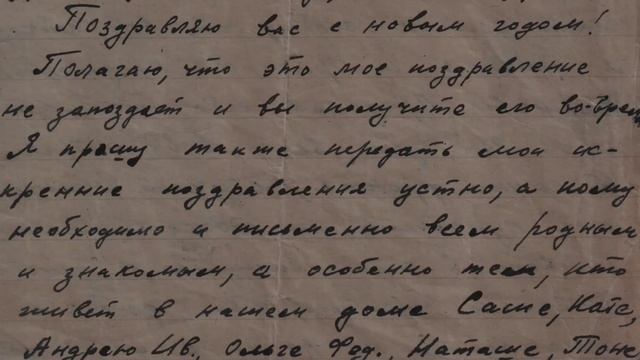 Поздравляю вас с новым годом!
Полагаю, что это мое поздравление
не запоздает и вы получите его во-врем
Я прошу также передать мои ис-
кренние поздравления устно, а кому
необходимо и письменно всем родным
и знакомым, а особенно тем, кто
живет в нашем доме Саше, Кате,
Андрею Ив., Ольге Фед., Наташе, Тоне